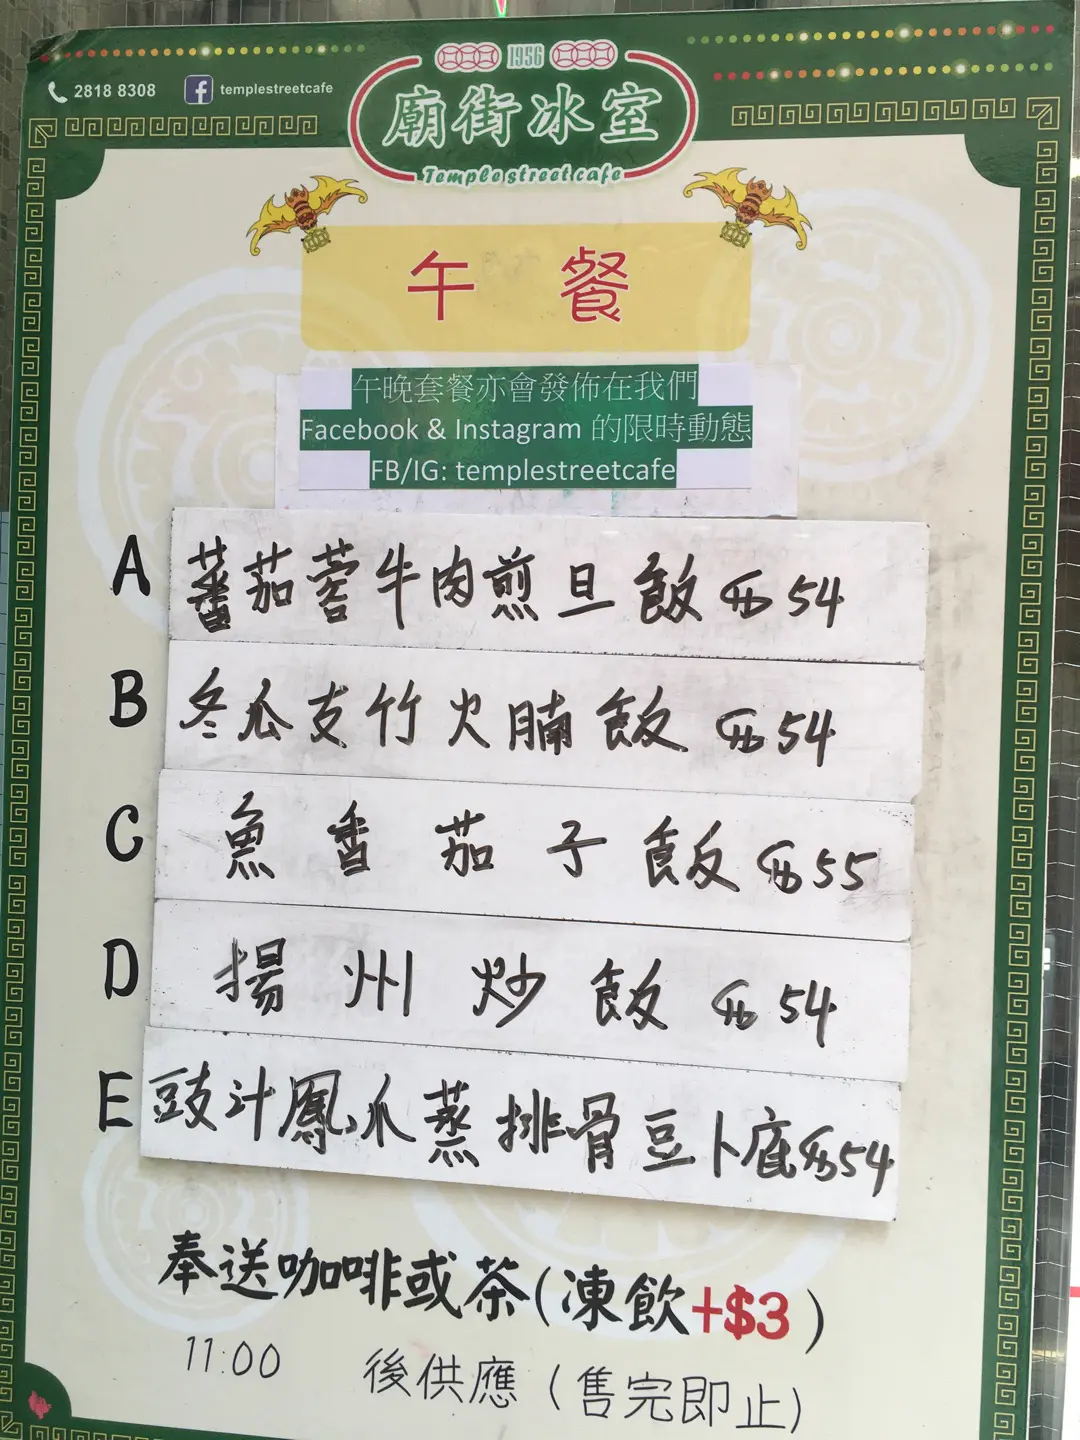 1956
2818 8308 templestreetcafe
廟街冰室
Temple street cafe
午 餐
午晚套餐亦會發佈在我們
Facebook & Instagram 的限時動態
FB/IG: templestreetcafe
A 蕃茄蓉牛肉煎旦飯 54
B 冬瓜支竹火腩飯 54
C 魚香茄子飯 55
D 揚州炒飯 54
E 豉汁鳳爪蒸排骨豆卜底 54
奉送咖啡或茶(凍飲+$3)
11:00 後供應 (售完即止)